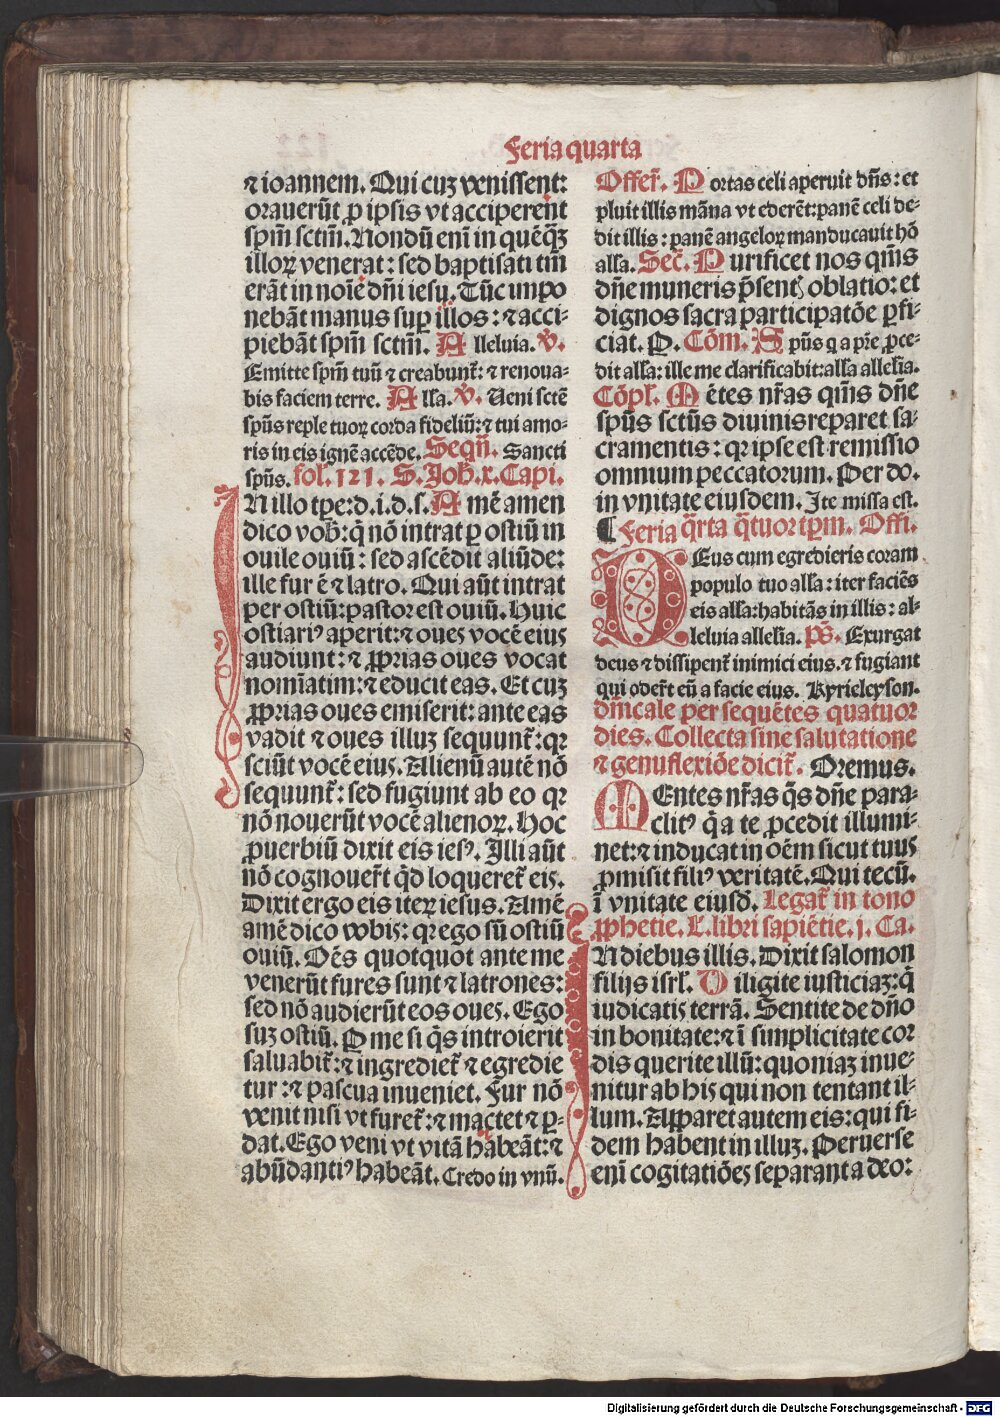 Feria quarta
⁊ ioannem. Qui cuꝫ venissent:
orauerūt ꝓ ipsis vt acciperent
spm̄ sctm̄. Nondū enī in quēq̄ꝫ
illoꝝ venerat: sed baptisati tm̄
erāt in noīe dn̄i iesu. Tūc impo
nebāt manus suꝑ illos: ⁊ acci-
piebāt spm̄ sctm̄. Alleluia. ℣.
Emitte spm̄ tuū ⁊ creabunt᷑: ⁊ renoua-
bis faciem terre. Alla. ℣. Ueni sctē
spūs reple tuoꝝ corda fideliū: ⁊ tui amo-
ris in eis ignē accēde. Seqn̄. Sancti
spūs. fol. 121. S. Joh. x. Capi.
IN illo tꝑe: d. i. d. s. Amē amen
dico vob̄: q̄ nō intrat ꝑ ostiū in
ouile ouiū: sed ascēdit aliūde:
ille fur ē ⁊ latro. Qui aūt intrat
per ostiū: pastor est ouiū. Huic
ostiariꝰ aperit: ⁊ oues vocē eius
audiunt: ⁊ ꝓprias oues vocat
nomīatim: ⁊ educit eas. Et cuꝫ
ꝓprias oues emiserit: ante eas
vadit ⁊ oues illuꝫ sequunt᷑: qꝛ
sciūt vocē eius. Alienū autē nō
sequunt᷑: sed fugiunt ab eo qꝛ
nō nouerūt vocē alienoꝝ. Hoc
ꝓuerbiū dixit eis iesꝰ. Illi aūt
nō cognouer̄t qd̄ loqueret᷑ eis.
Dixit ergo eis iteꝝ iesus. Amē
amē dico vobis: qꝛ ego sū ostiū
ouiū. Oēs quotquot ante me
venerūt fures sunt ⁊ latrones:
sed nō audierūt eos oues. Ego
suꝫ ostiū. P me si q̄s introierit
saluabit᷑: ⁊ ingrediet᷑ ⁊ egredie
tur: ⁊ pascua inueniet. Fur nō
venit nisi vt furet᷑: ⁊ mactet ⁊ ꝑ-
dat. Ego veni vt vitā habeāt: ⁊
abūdantiꝰ habeāt. Credo in vnū.
Offer̄. Portas celi aperuit dn̄s: et
pluit illis māna vt ederēt: panē celi de-
dit illis: panē angeloꝝ manducauit hō
alla. Sec̄. Purificet nos qm̄s
dn̄e muneris p̄sentꝭ oblatio: et
dignos sacra participatōe ꝑfi-
ciat. P. Cōm. Spūs q a pr̄e ꝓce-
dit alla: ille me clarificabit: alla allelia.
Cōpl. Mētes nr̄as qm̄s dn̄e
spūs sctūs diuinis reparet sa-
cramentis: qꝛ ipse est remissio
omnium peccatorum. Per do.
in vnitate eiusdem. Ite missa est.
¶ Feria q̄rta q̄tuor tꝑm. Offi.
DEus cum egredieris coram
populo tuo alla: iter faciēs
eis alla: habitās in illis: al-
leluia allelia. ps̄. Exurgat
deus ⁊ dissipent᷑ inimici eius. ⁊ fugiant
qui oder̄t eū a facie eius. Kyrieleyson.
dn̄icale per sequētes quatuor
dies. Collecta sine salutatione
⁊ genuflexiōe dicit᷑. Oremus.
MEntes nr̄as q̄s dn̄e para-
clitꝰ q̄ a te ꝓcedit illumi-
net: ⁊ inducat in oēm sicut tuus
ꝓmisit filiꝰ veritatē. Qui tecū.
ī vnitate eiusd̄. Legat᷑ in tono
ꝓphetie. L̄. libri sapiētie. j. Ca.
IN diebus illis. Dixit salomon
filijs isrl̄. Diligite iusticiaꝫ: q̄
iudicatis terrā. Sentite de dn̄o
in bonitate: ⁊ ī simplicitate cor
dis querite illū: quoniaꝫ inue-
nitur ab his qui non tentant il-
lum. Apparet autem eis: qui fi-
dem habent in illuꝫ. Peruerse
enī cogitatiōes separant a deo:
Digitalisierung gefördert durch die Deutsche Forschungsgemeinschaft - DFG